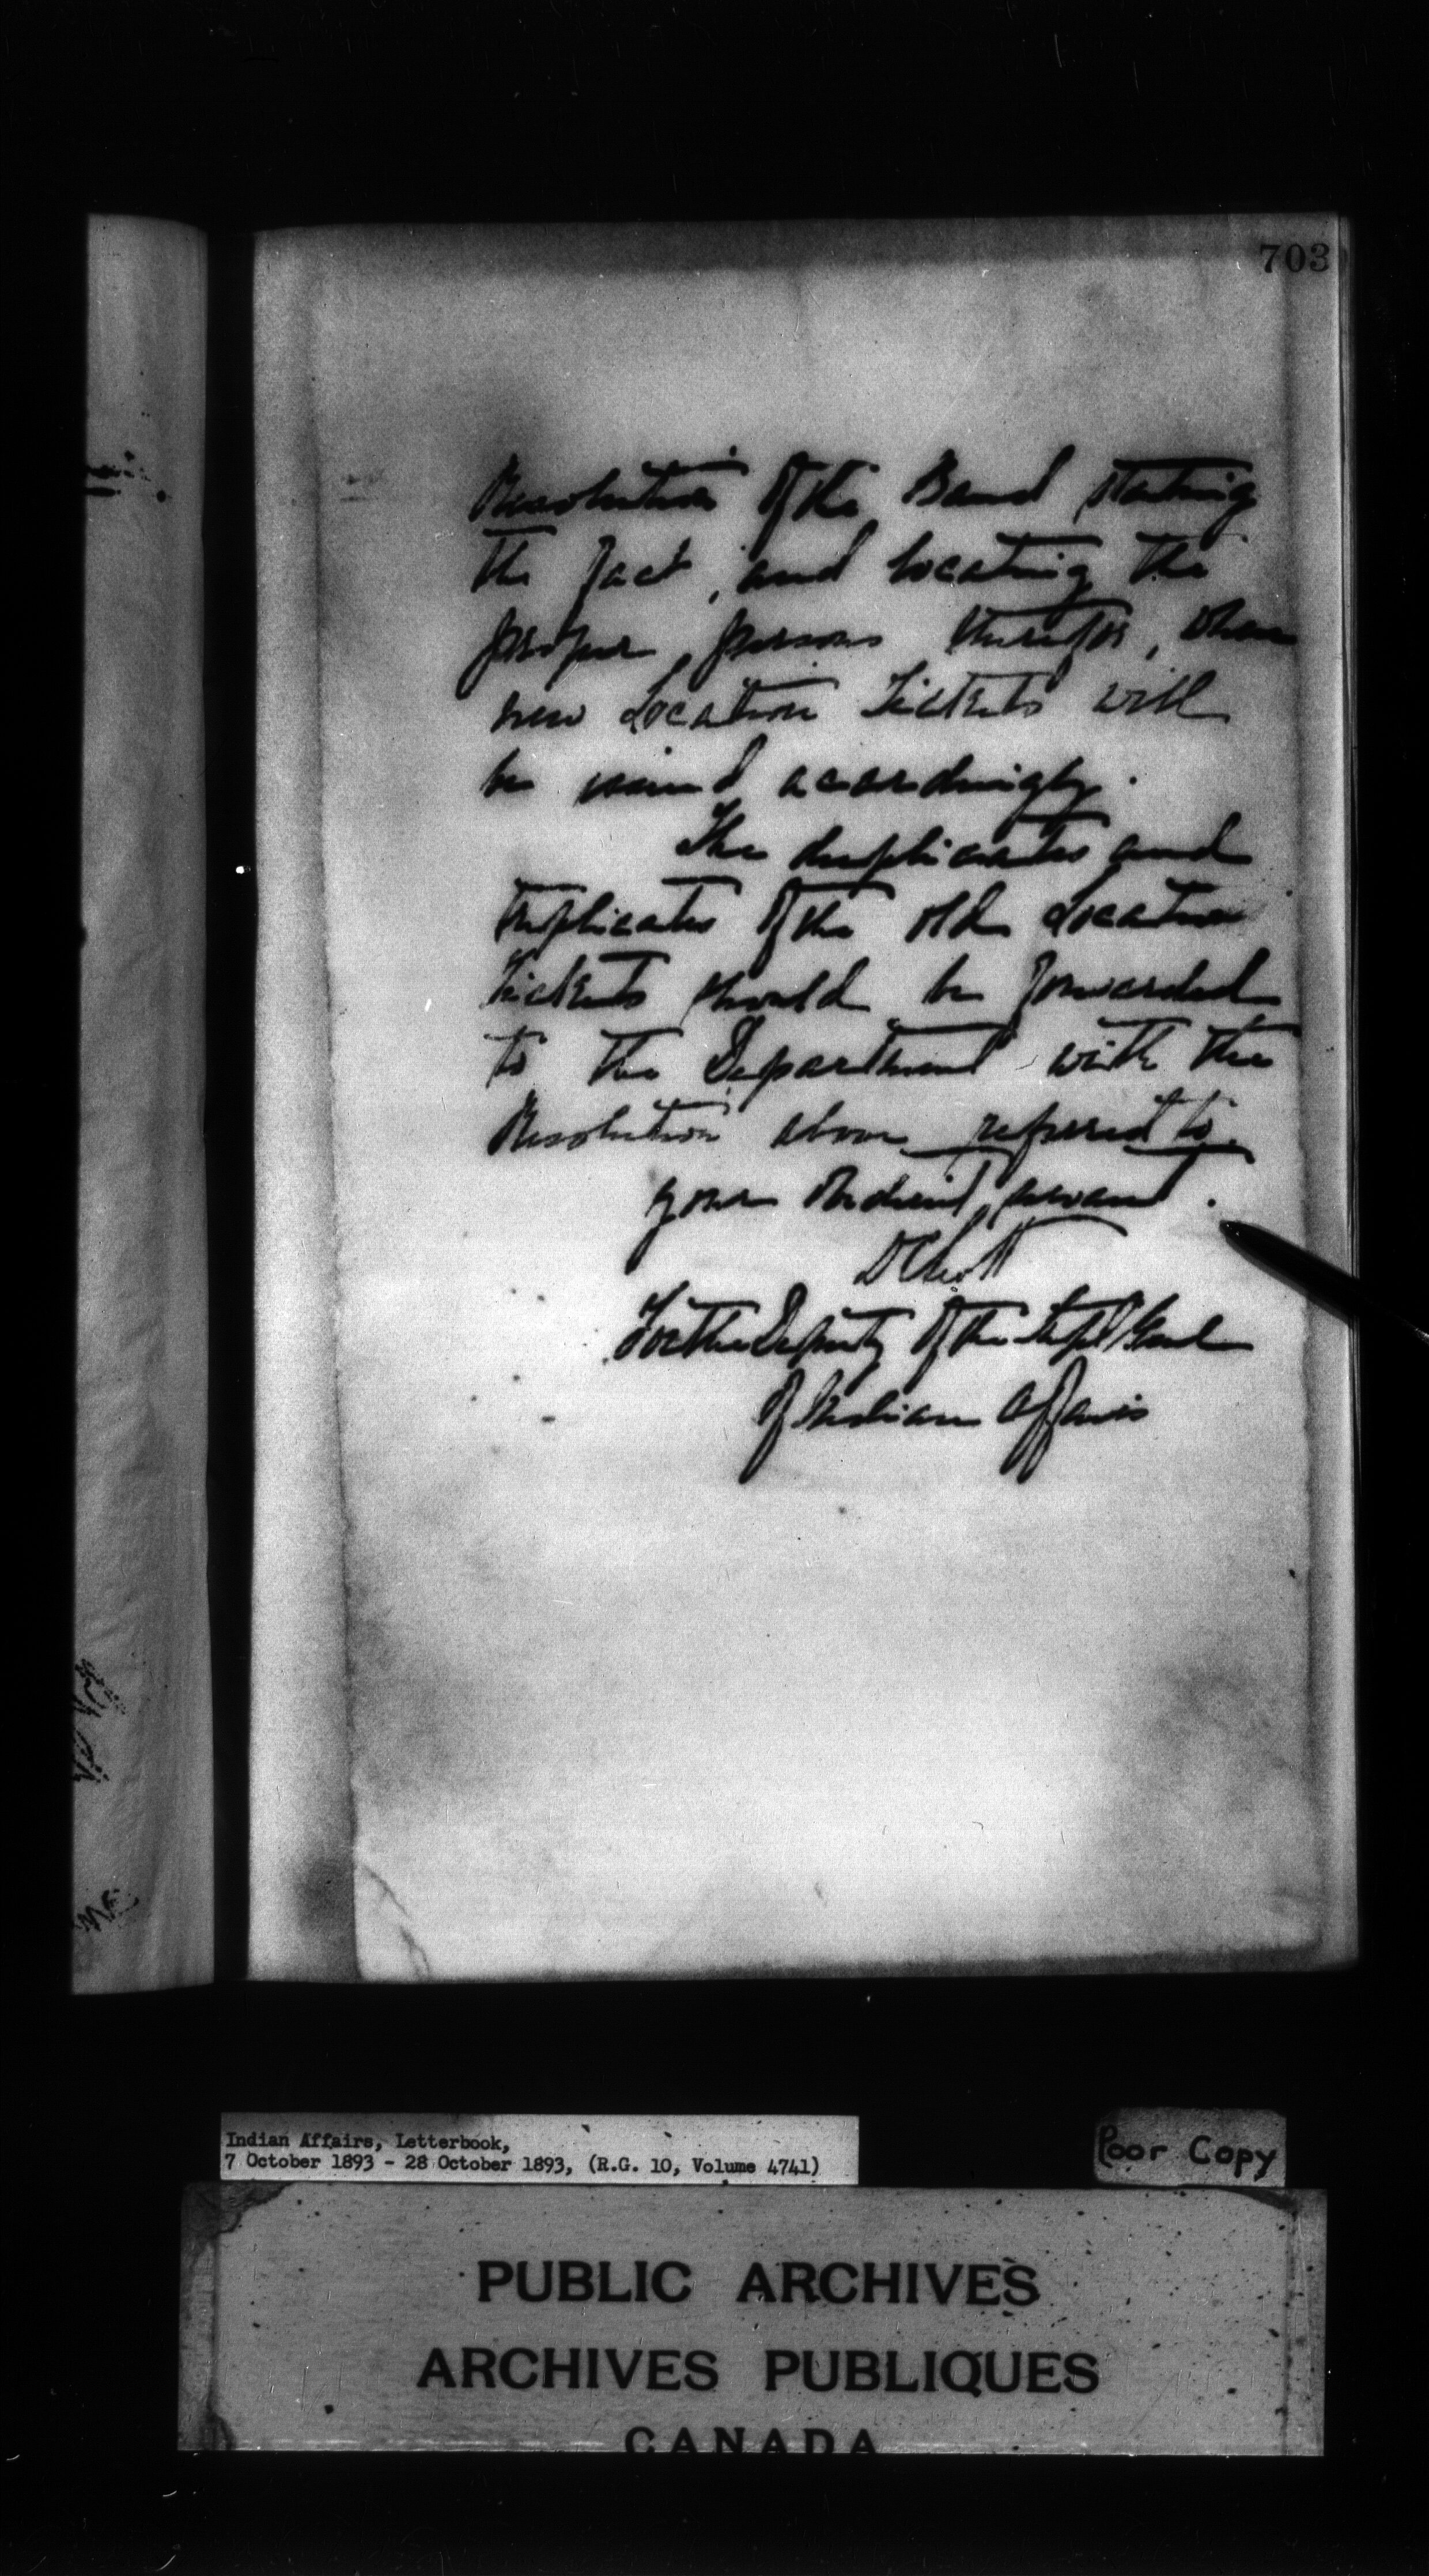 703
Resolution of the Band stating
the fact, and locating the
proper persons therefor, when
new Location Tickets will
be issued accordingly.
The duplicates and
triplicates of the old Location
Tickets should be forwarded
to the Department with the
Resolution above referred to.
Your obedient servant.
D C Scott
For the Deputy of the Supt Genl
of Indian Affairs
Indian Affairs, Letterbook,
7 October 1893 - 28 October 1893, (R.G. 10, Volume 4741)
Poor Copy
PUBLIC ARCHIVES
ARCHIVES PUBLIQUES
CANADA